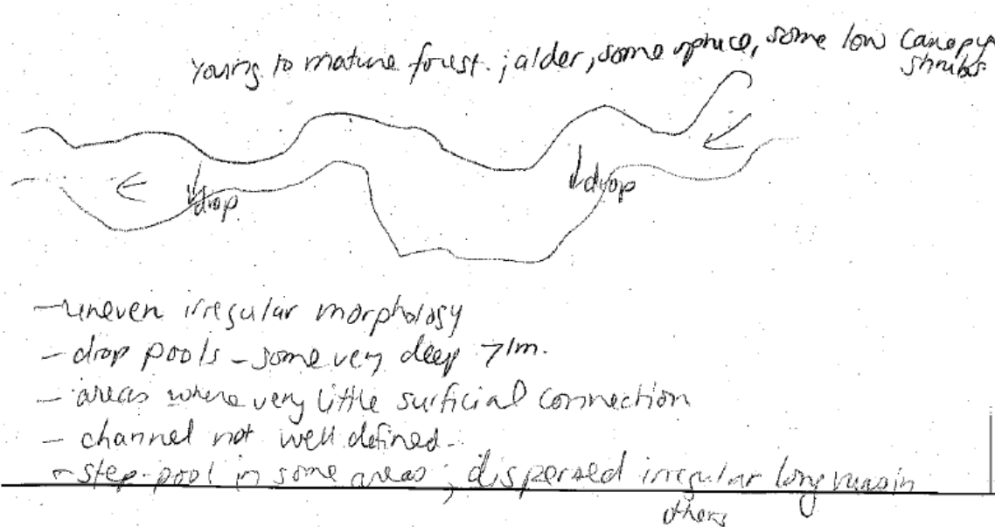 Young to mature forest. ; alder, some spruce, some low canopy
shrubs
drop
drop
- uneven irregular morphology
- drop pools - some very deep >1m.
- areas where very little surficial connection
- channel not well defined -
- step-pool in some areas ; dispersed irregular long in
others